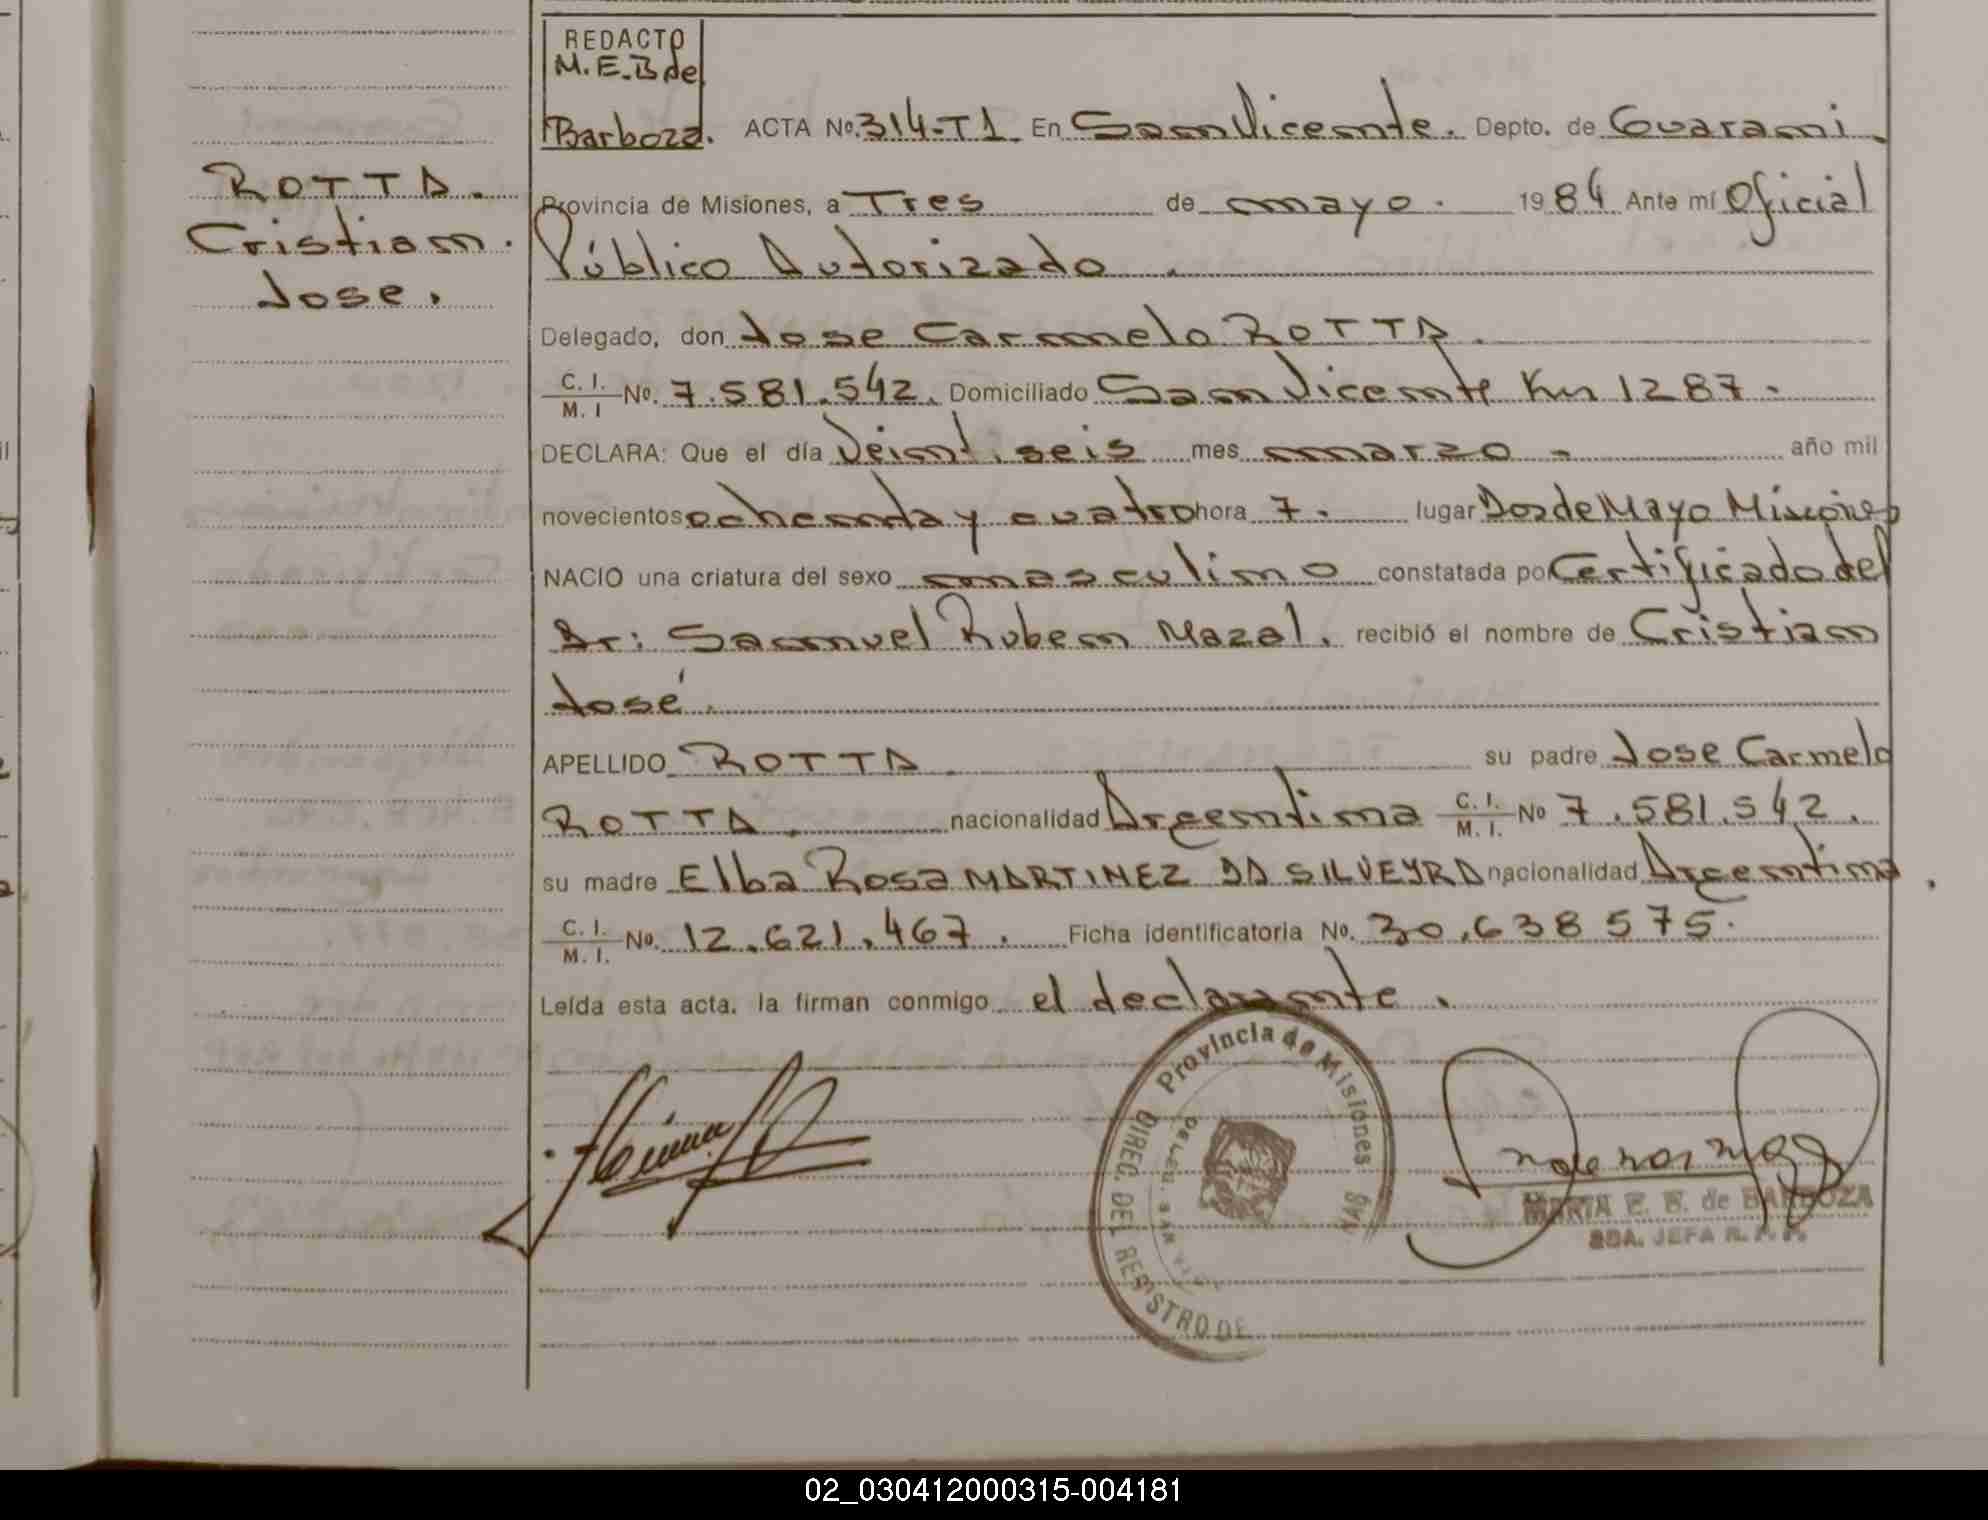 REDACTO
M.E.B de
Barboza. ACTA Nº 314-T1 En San Vicente. Depto. de Guarani.
ROTTA.
Cristian.
Jose.
Provincia de Misiones, a Tres de mayo. 1984 Ante mí Oficial
Público Autorizado.
Delegado, don Jose Carmelo ROTTA.
C. I. M. I Nº. 7.581.542. Domiciliado San Vicente Km 1287.
DECLARA: Que el día Veinti seis mes marzo - año mil
novecientos ochenta y cuatro hora 7. lugar Dos de Mayo Misiones
NACIO una criatura del sexo masculino constatada por Certificado del
Dr: Samuel Ruben Mazal. recibió el nombre de Cristian
José.
APELLIDO ROTTA su padre Jose Carmelo
ROTTA. nacionalidad Argentina C. I. M. I. Nº 7.581.542.
su madre Elba Rosa MARTINEZ DA SILVEYRA nacionalidad Argentina.
C. I. M. I. Nº. 12.621.467. Ficha identificatoria Nº. 30.638575.
Leída esta acta. la firman conmigo el declarante.
Provincia de Misiones
DIREC. DEL REGISTRO DE
MARIA E. B. de BARBOZA
2DA. JEFA R. P. P.
02_030412000315-004181